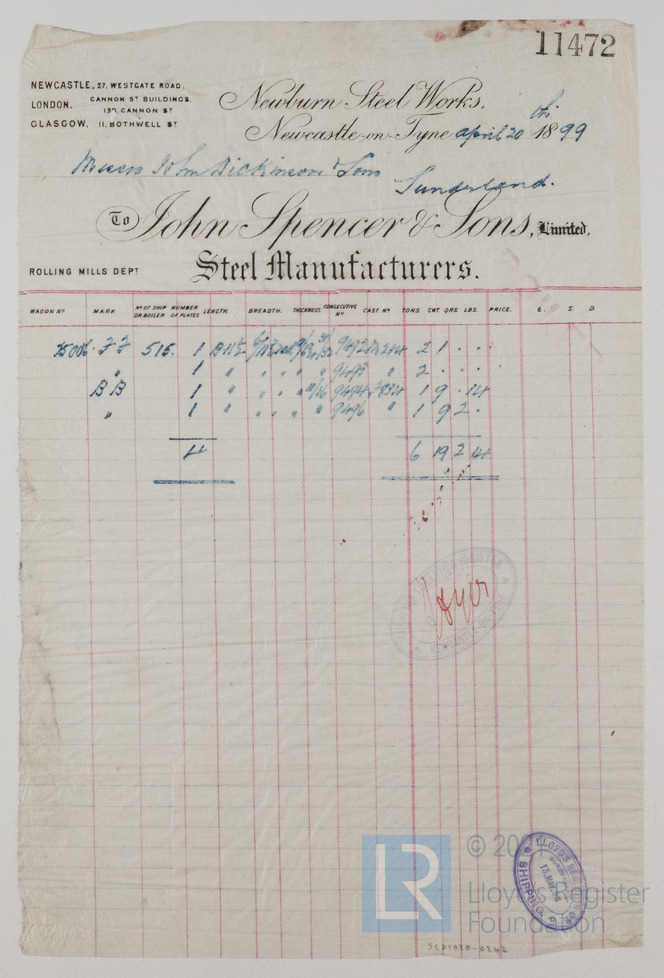 11472
NEWCASTLE, 27, WESTGATE ROAD.
LONDON, CANNON ST BUILDINGS, 139, CANNON ST
GLASGOW, 11, BOTHWELL ST
Newburn Steel Works,
Newcastle-on-Tyne April 20th 1899
Messrs John Dickinson & Sons
Sunderland.
To John Spencer & Sons, Limited,
ROLLING MILLS DEPT Steel Manufacturers.
WAGON No MARK No OF SHIP OR BOILER NUMBER OF PLATES LENGTH. BREADTH. THICKNESS. CONSECUTIVE No CAST No TONS. CWT. QRS. LBS. PRICE. £. S. D
515. 1 9492 2 1 . .
" 1 " " " " " 9493 " 2 . . .
BB 1 " " " " 11/16 9494 1 9 . 14
" 1 " " " " " 9496 " 1 9 2 .
4 6 19 2 14
LR
© 20
Lloyd's Register
Foundation
LLOYD'S REG
SHIPPING